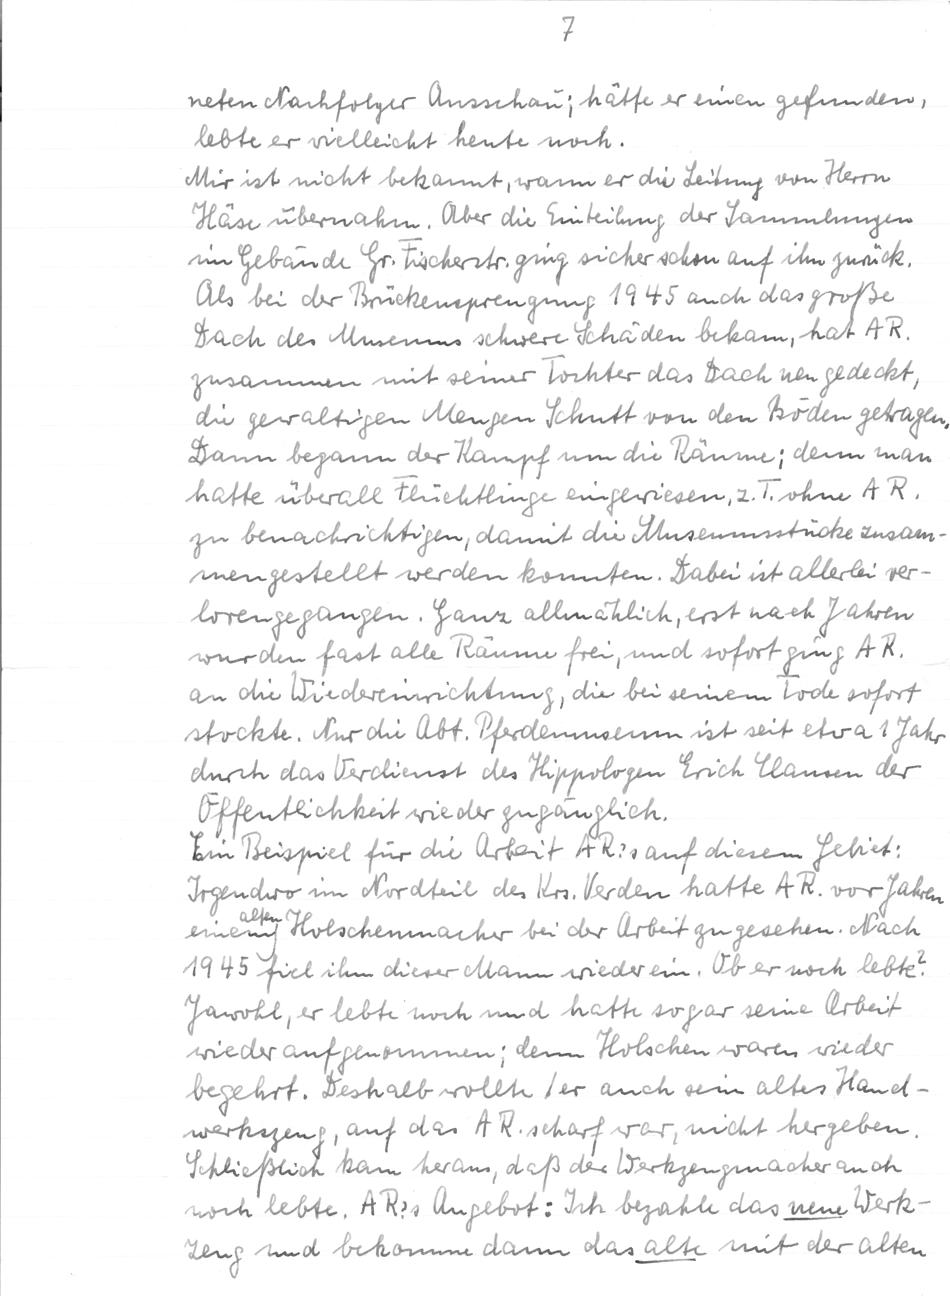 7
neten Nachfolger Ausschau; hätte er einen gefunden,
lebte er vielleicht heute noch.
Mir ist nicht bekannt, wann er die Leitung von Herrn
Häse übernahm. Aber die Einteilung der Sammlungen
im Gebäude Gr. Fischerstr. ging sicher schon auf ihn zurück.
Als bei der Brückensprengung 1945 auch das große
Dach des Museums schwere Schäden bekam, hat AR.
zusammen mit seiner Tochter das Dach neu gedeckt,
die gewaltigen Mengen Schutt von den Böden getragen.
Dann begann der Kampf um die Räume; denn man
hatte überall Flüchtlinge eingewiesen, z.T. ohne AR.
zu benachrichtigen, damit die Museumsstücke zusam-
mengestellt werden konnten. Dabei ist allerlei ver-
lorengegangen. Ganz allmählich, erst nach Jahren
wurden fast alle Räume frei, und sofort ging AR.
an die Wiedereinrichtung, die bei seinem Tode sofort
stockte. Nur die Abt. Pferdemuseum ist seit etwa 1 Jahr
durch das Verdienst des Hippologen Erich Clausen der
Öffentlichkeit wieder zugänglich.
Ein Beispiel für die Arbeit AR's auf diesem Gebiet:
Irgendwo im Nordteil des Krs. Verden hatte AR. vor Jahren
einem alten Holschenmacher bei der Arbeit zugesehen. Nach
1945 fiel ihm dieser Mann wieder ein. Ob er noch lebte?
Jawohl, er lebte noch und hatte sogar seine Arbeit
wieder aufgenommen; denn Holschen waren wieder
begehrt. Deshalb wollte er auch sein altes Hand-
werkszeug, auf das AR. scharf war, nicht hergeben.
Schließlich kam heraus, daß der Werkzeugmacher auch
noch lebte. AR's Angebot: Ich bezahle das neue Werk-
zeug und bekomme dann das alte mit der alten